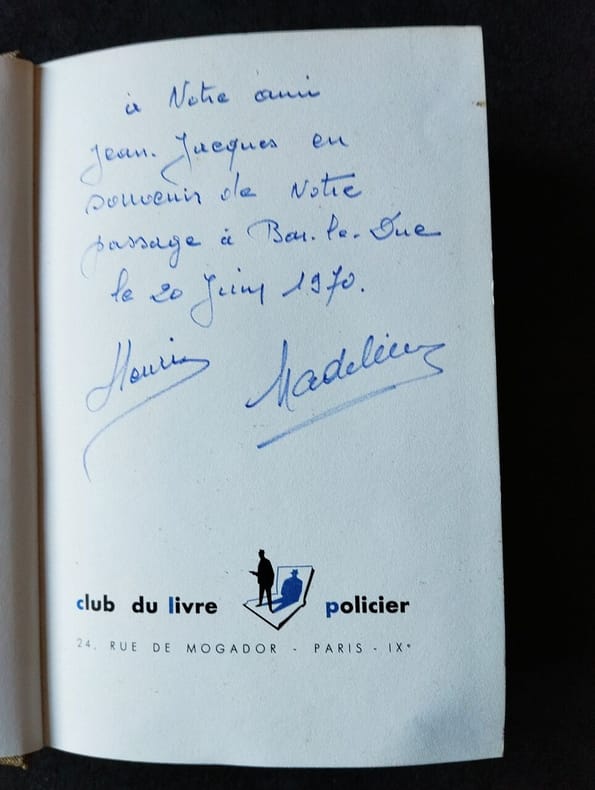 à Notre ami
Jean-Jacques en
souvenir de Notre
passage à Bar-le-Duc
le 20 Juin 1970.
Henri
Madeleine
club du livre policier
24, RUE DE MOGADOR - PARIS - IXᵉ